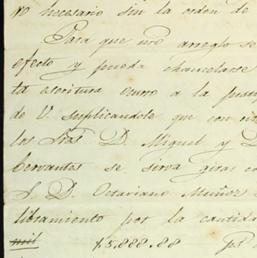 no necesario sin la orden de
Para que uno arreglo se
efecto y pueda chancelarse
ta escritura ocurro a la
de V. suplicandole que con
los Sras D. Miguel y D.
Cervantes se sirva girar
S. D. Octaviano Muñoz
libramiento por la cantida
mil $5,888.88